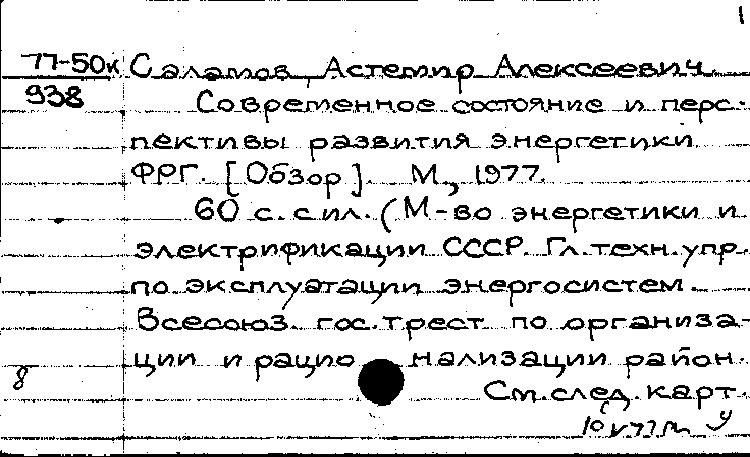 1
77-50к Саламов, Астемир Алексеевич.
938
Современное состояние и перс-
пективы развития энергетики
ФРГ. [Обзор]. М., 1977.
60 с. с ил. (М-во энергетики и
электрификации СССР. Гл. техн. упр.
по эксплуатации энергосистем.
Всесоюз. гос. трест по организа-
ции и рацио нализации район.
8
См. след. карт.